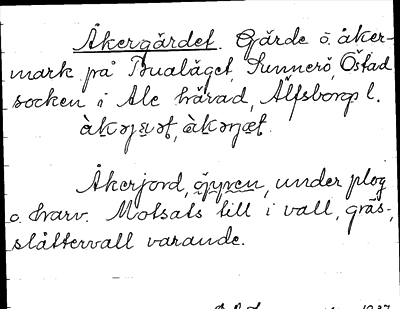 Åkergärdet. Gärde o. åker-
mark på Bualäget, Sunnerö, Östad
socken i Ale härad, Älfsborgs l.
Åkerjord, öppen, under plog
o. harv. Motsats till i vall, gräs-,
slåttervall varande.